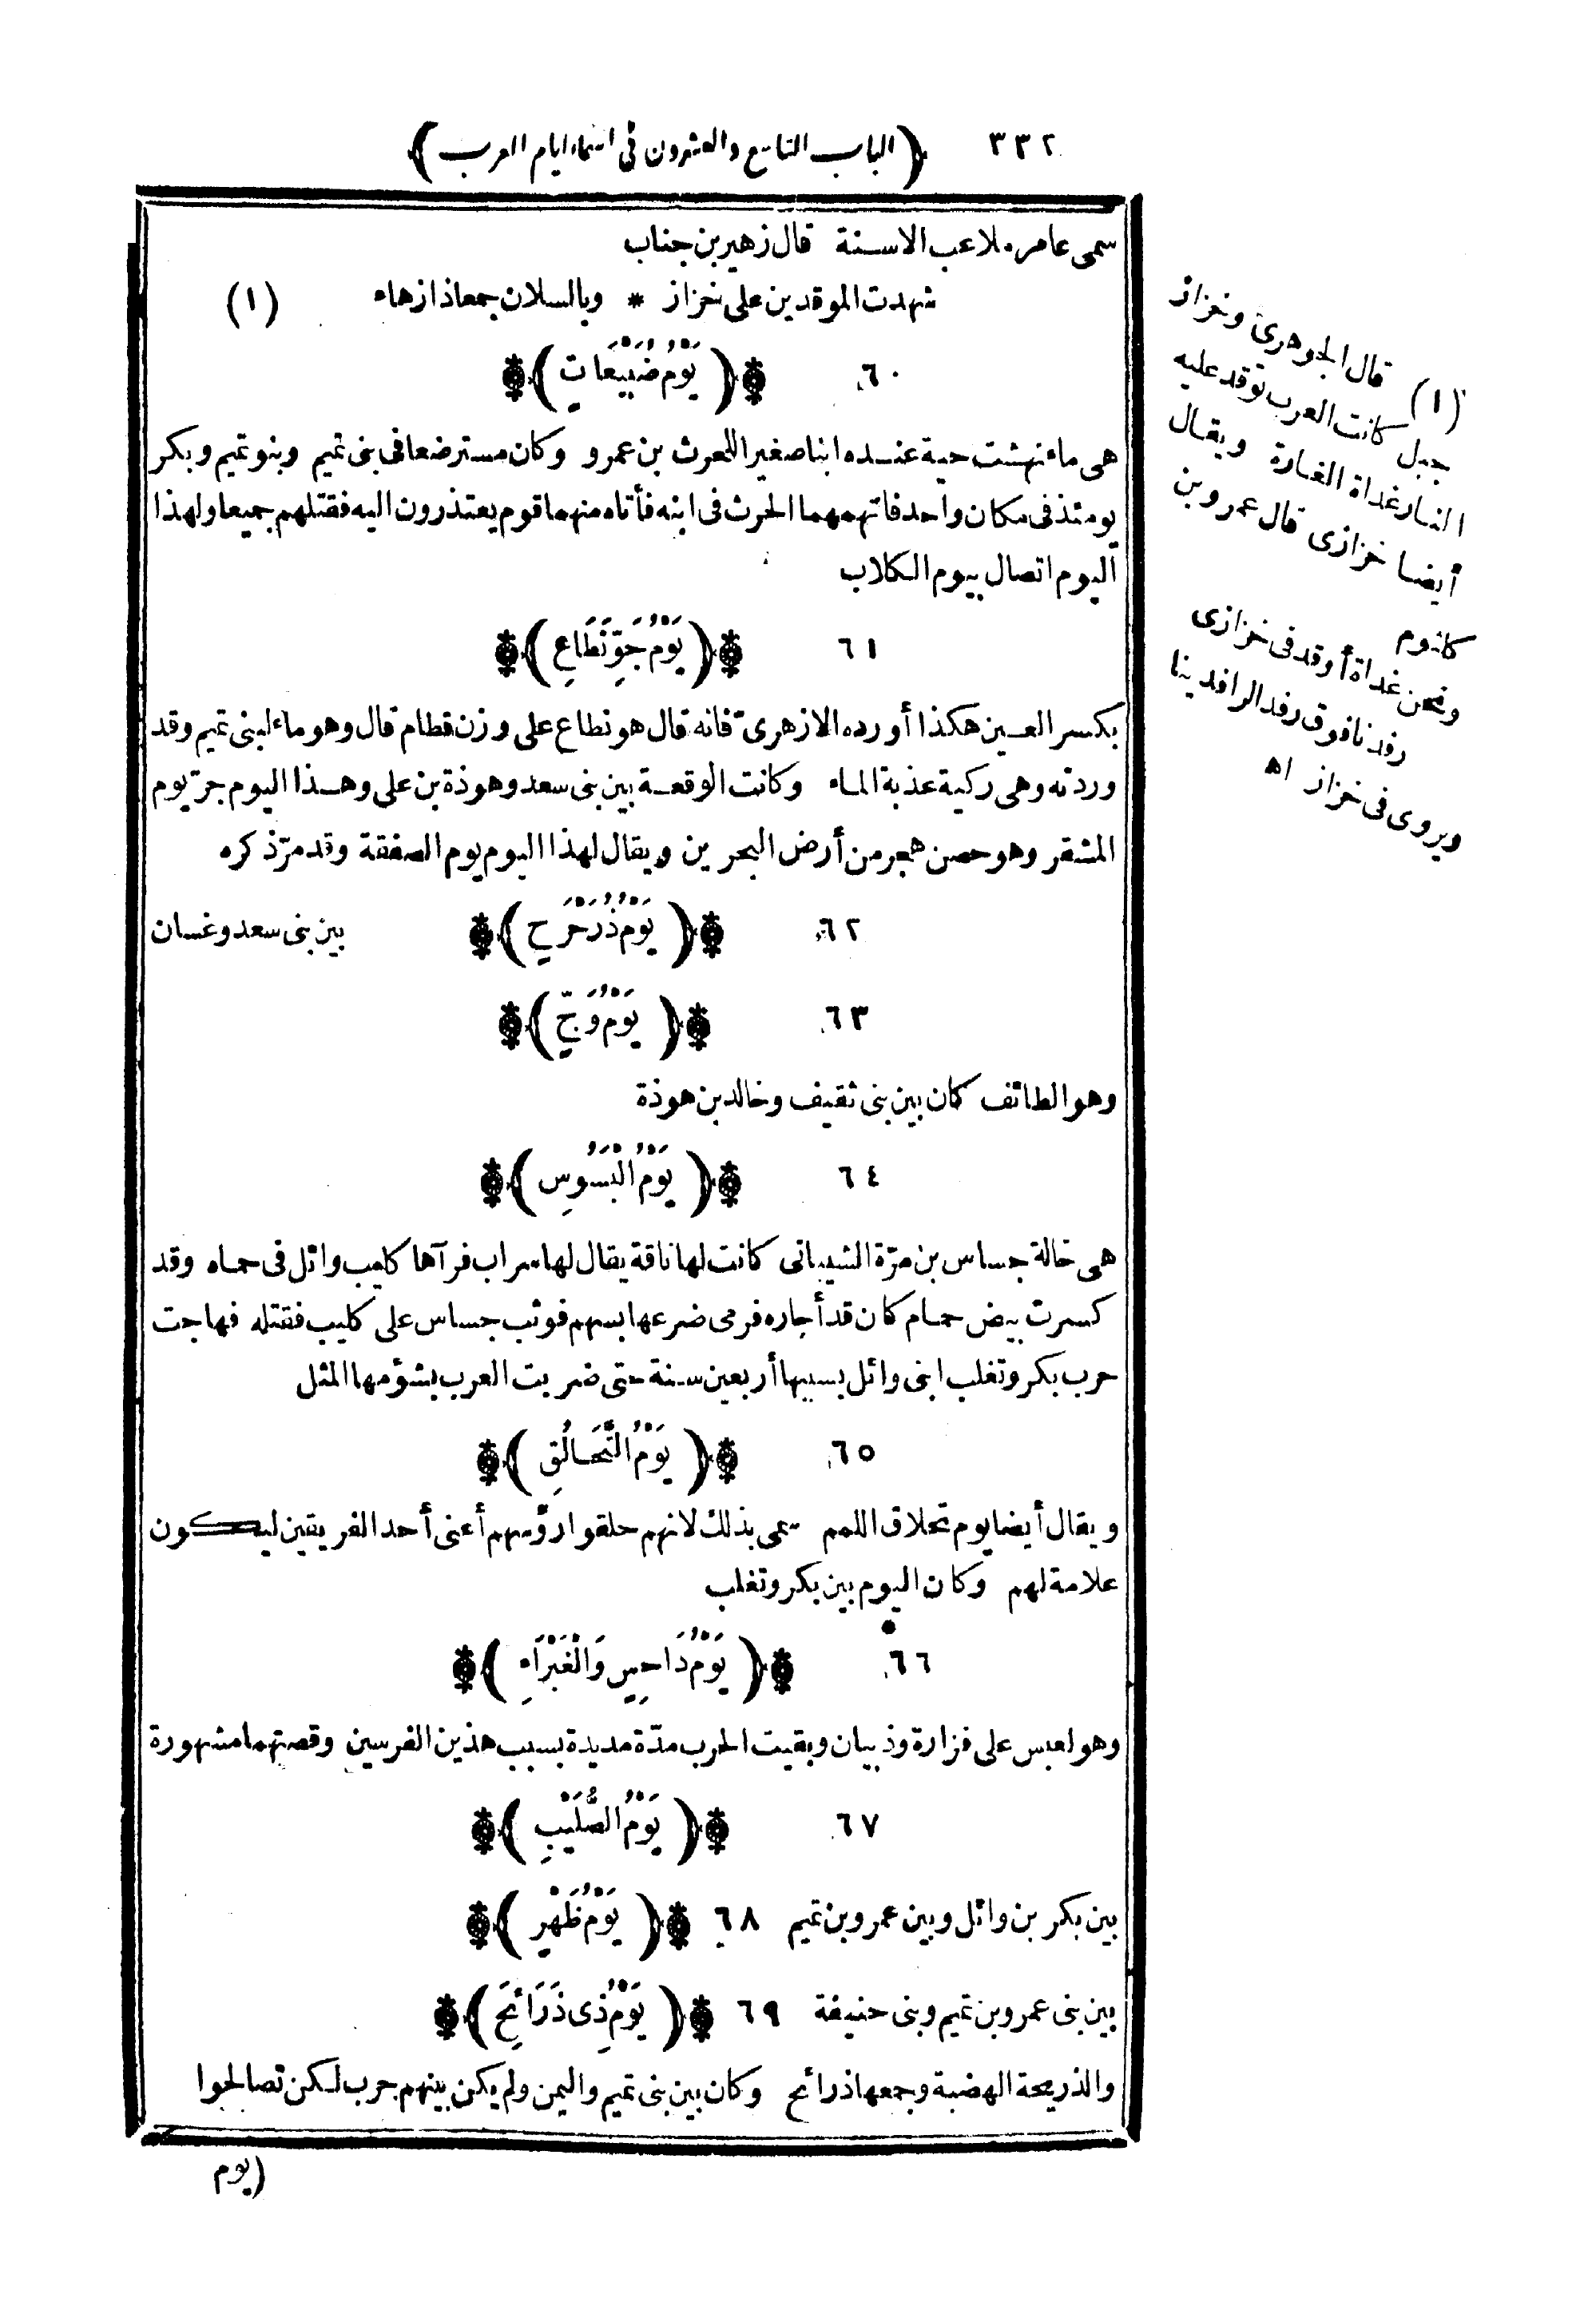 ٣٣٢ ﴿الباب التاسع والعشرون فى اسماء ايام العرب﴾
سمى عامر ملاعب الاسنة قال زهير بن جناب
شهدت الموقدين على خزاز * وبالسلان جمعا ذا زهاء (١)
٦٠ ﴿يَوْمُ ضُبَيْعَاتٍ﴾
هى ماء نهشت حية عنده ابنا صغيرا للحرث بن عمرو وكان مسترضعا فى بنى تميم وبنو تميم وبكر
يومئذ فى مكان واحد فاتهمهما الحرث فى ابنه فأتاه منهما قوم يعتذرون اليه فقتلهم جميعا ولهذا
اليوم اتصال بيوم الكلاب
٦١ ﴿يَوْمُ جَوِّ نَطَاعِ﴾
بكسر العين هكذا أورده الازهرىّ فانه قال هو نطاع على وزن قطام قال وهو ماء لبنى تميم وقد
وردته وهى ركية عذبة الماء وكانت الوقعة بين بنى سعد وهوذة بن على وهذا اليوم جرّ يوم
المشقر وهو حصن هجر من أرض البحرين ويقال لهذا اليوم يوم الصفقة وقد مرّ ذكره
٦٢ ﴿يَوْمُ ذُرَحْرَحٍ﴾ بين بنى سعد وغسان
٦٣ ﴿يَوْمُ وَجٍّ﴾
وهو الطائف كان بين بنى ثقيف وخالد بن هوذة
٦٤ ﴿يَوْمُ الْبَسُوسِ﴾
هى خالة جساس بن مرّة الشيبانى كانت لها ناقة يقال لها سراب فرآها كليب وائل فى حماه وقد
كسرت بيض حمام كان قد أجاره فرمى ضرعها بسهم فوثب جساس على كليب فقتله فهاجت
حرب بكر وتغلب ابنى وائل بسببها أربعين سنة حتى ضربت العرب بشؤمها المثل
٦٥ ﴿يَوْمُ التَّحَالُقِ﴾
ويقال أيضا يوم تحلاق اللمم سمى بذلك لانهم حلقوا رؤسهم أعنى أحد الفريقين ليكون
علامة لهم وكان اليوم بين بكر وتغلب
٦٦ ﴿يَوْمُ دَاحِسٍ وَالْغَبْرَاءِ﴾
وهو لعبس على فزارة وذبيان وبقيت الحرب مدّة مديدة بسبب هذين الفرسين وقصتهما مشهورة
٦٧ ﴿يَوْمُ الصُّلَيْبِ﴾
بين بكر بن وائل وبين عمرو بن تميم ٦٨ ﴿يَوْمُ ظَهْرٍ﴾
بين بنى عمرو بن تميم وبنى حنيفة ٦٩ ﴿يَوْمُ ذِى ذَرَائِحَ﴾
والذريحة الهضبة وجمعها ذرائح وكان بين بنى تميم واليمن ولم يكن بينهم حرب لكن تصالحوا
(يوم
(١) قال الجوهرىّ وخزاز
جبل كانت العرب توقد عليه
النار غداة الغارة ويقال
أيضا خزازى قال عمرو بن
كلثوم
ونحن غداة أوقد فى خزازى
رفدنا فوق رفد الرافدينا
ويروى فى خزاز اه